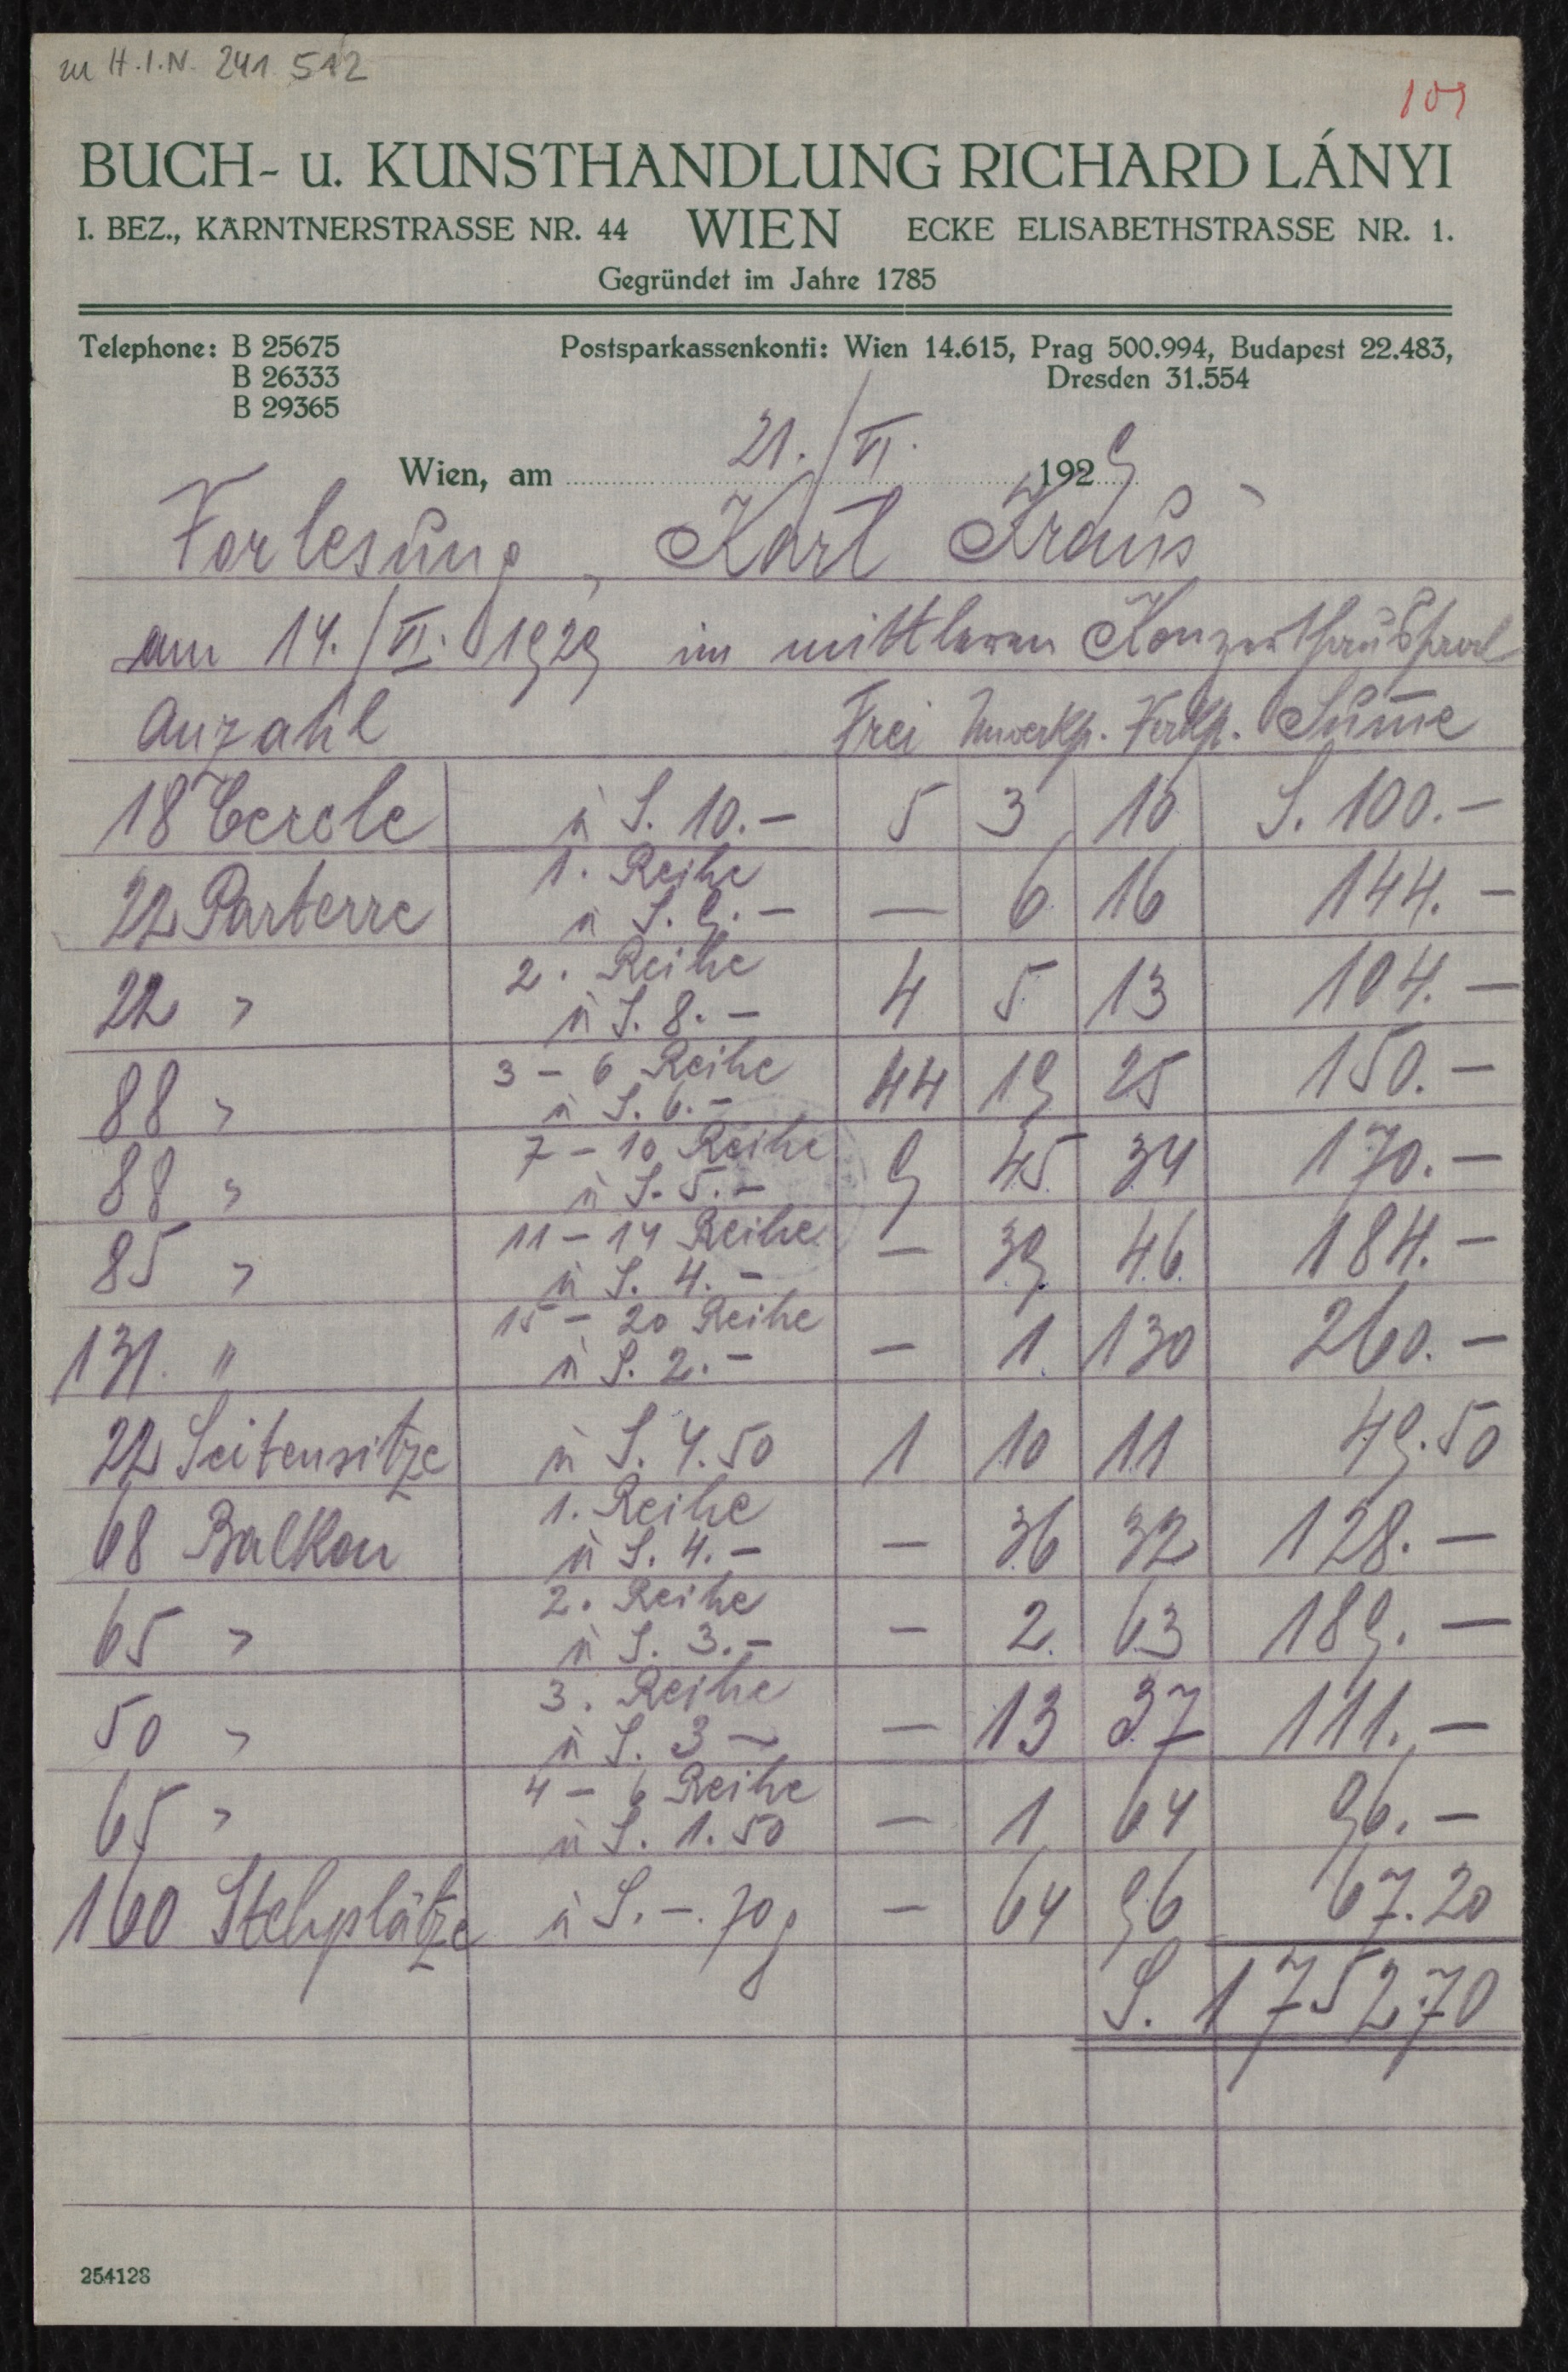 zu H.I.N. 241 512
109
BUCH- u. KUNSTHANDLUNG RICHARD LÁNYI
I. BEZ., KÄRNTNERSTRASSE NR. 44 WIEN ECKE ELISABETHSTRASSE NR. 1.
Gegründet im Jahre 1785
Telephone: B 25675
B 26333
B 29365
Postsparkassenkonti: Wien 14.615, Prag 500.994, Budapest 22.483,
Dresden 31.554
Wien, am 21./VI. 1929
Vorlesung, Karl Kraus
am 14./VI. 1929 im mittleren Konzerthaussaal
Anzahl Frei Unverkp. Verkp. Sum̅e
18 Cercle à S. 10.— 5 3 10 S. 100.—
22 Parterre 1. Reihe à S. 9.— — 6 16 144.—
22 " 2. Reihe à S. 8.— 4 5 13 104.—
88 " 3 – 6 Reihe à S. 6.— 44 19 25 150.—
88 " 7 – 10 Reihe à S. 5.— 9 45 34 170.—
85 " 11 – 14 Reihe à S. 4.— — 39 46 184.—
131. " 15 – 20 Reihe à S. 2.— — 1 130 260.—
22 Seitensitze à S. 4.50 1 10 11 49.50
68 Balkon 1. Reihe à S. 4.— — 36 32 128.—
65 " 2. Reihe à S. 3.— — 2 63 189.—
50 " 3. Reihe à S. 3 — — 13 37 111.—
65 " 4 – 6 Reihe à S. 1.50 — 1 64 96.—
160 Stehplätze à S. —.70 g — 64 96 67.20
S. 1752.70
254128